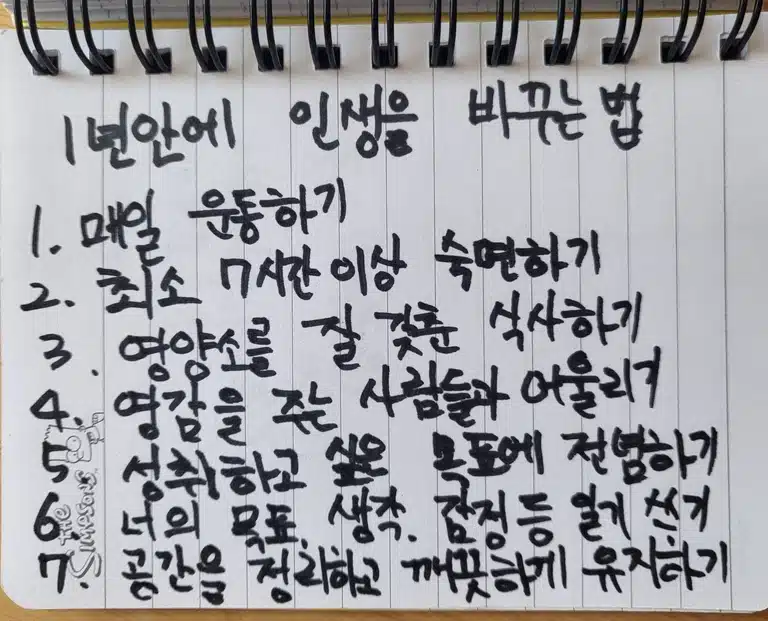 1년안에 인생을 바꾸는 법
1. 매일 운동하기
2. 최소 7시간 이상 숙면하기
3. 영양소를 잘 갖춘 식사하기
4. 영감을 주는 사람들과 어울리기
5 성취하고 싶은 목표에 전념하기
6. 너의 목표, 생각, 감정등 일기 쓰기
7. 공간을 정리하고 깨끗하게 유지하기
THE SIMPSONS